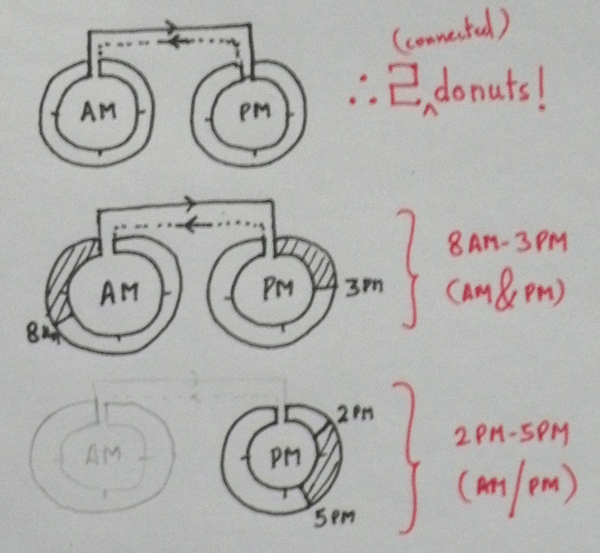 (connected)
∴ 2 ^ donuts!
AM PM
AM PM
8AM
3PM
8AM-3PM
(AM & PM)
AM PM
2PM
5PM
2PM-5PM
(AM/PM)